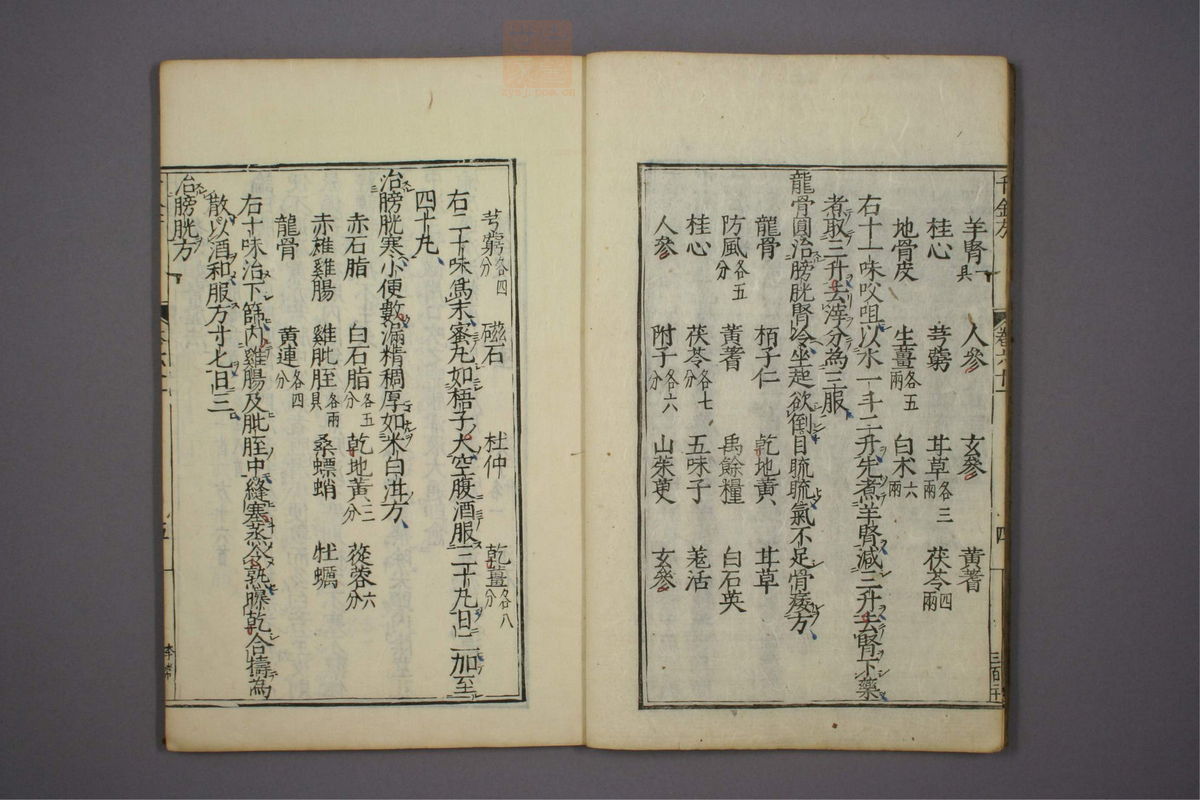 千金方
卷六十一
四
羊腎一具 人參 玄參 黃耆
桂心 芎藭 甘草各三兩 茯苓四兩
地骨皮 生薑各五兩 白朮六兩
右十一味㕮咀以水一斗二升先煮羊腎減三升去腎下藥
煮取三升去滓分為三服
龍骨圓治膀胱腎冷坐起欲倒目䀮䀮氣不足骨痿方
龍骨 栢子仁 乾地黃 甘草
防風各五分 黃耆 禹餘糧 白石英
桂心 茯苓各七分 五味子 羌活
人參 附子各六分 山茱萸 玄參
芎藭各四分 磁石 杜仲 乾薑各八分
右二十味為末蜜丸如梧子大空腹酒服三十丸日二加至
四十丸
治膀胱寒小便數漏精稠厚如米白泔方
赤石脂 白石脂各五分 乾地黃三分 蓯蓉六分
赤雄雞腸 雞肶胵各兩具 桑螵蛸 牡蠣
龍骨 黃連各四分
右十味治下篩內雞腸及肶胵中縫塞蒸令熟曝乾合擣為
散以酒和服方寸匕日三
治膀胱方
五